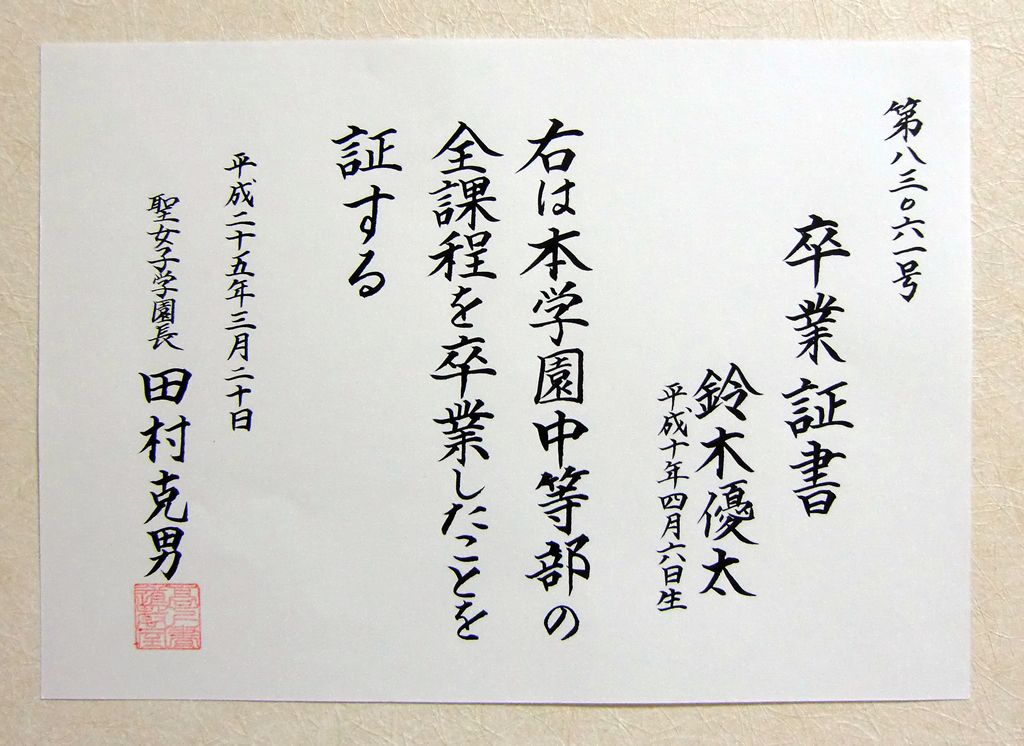 第八三〇六一号
卒業証書
鈴木優太
平成十年四月六日生
右は本学園中等部の
全課程を卒業したことを
証する
平成二十五年三月二十日
聖女子学園長 田村克男